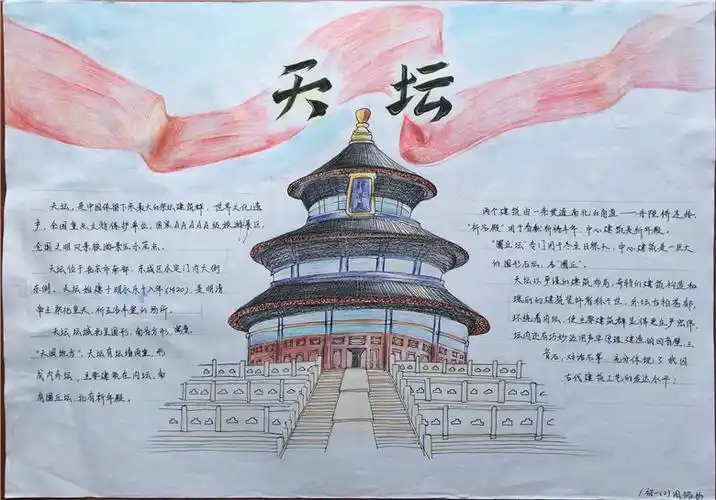 天坛
祈年殿
天坛，是中国保留下来最大的祭坛建筑群，世界文化遗
产，全国重点文物保护单位，国家AAAAA级旅游景区，
全国文明风景旅游景区示范点。
天坛位于北京市南部，东城区永定门内大街
东侧。天坛始建于明永乐十八年(1420)，是明清
帝王祭祀皇天、祈五谷丰登的场所。
天坛坛域北呈圆形，南为方形，寓意
“天圆地方”。天坛有坛墙两重，形
成内外坛，主要建筑在内坛，南
有圜丘坛，北有祈年殿。
两个建筑由一条贯通南北的甬道——丹陛桥连接。
“祈谷殿”用于春季祈祷丰年，中心建筑是祈年殿。
“圜丘坛”专门用于冬至日祭天，中心建筑是一巨大
的圆形石坛，名“圜丘”。
天坛以严谨的建筑布局，奇特的建筑构造和
瑰丽的建筑装饰著称于世。外坛古柏葱郁，
环绕着内坛，使主要建筑群显得更庄严宏伟。
坛内还有巧妙运用声学原理建造的回音壁、三
音石、对话石等，充分体现了我国
古代建筑工艺的发达水平；
初一(2)周